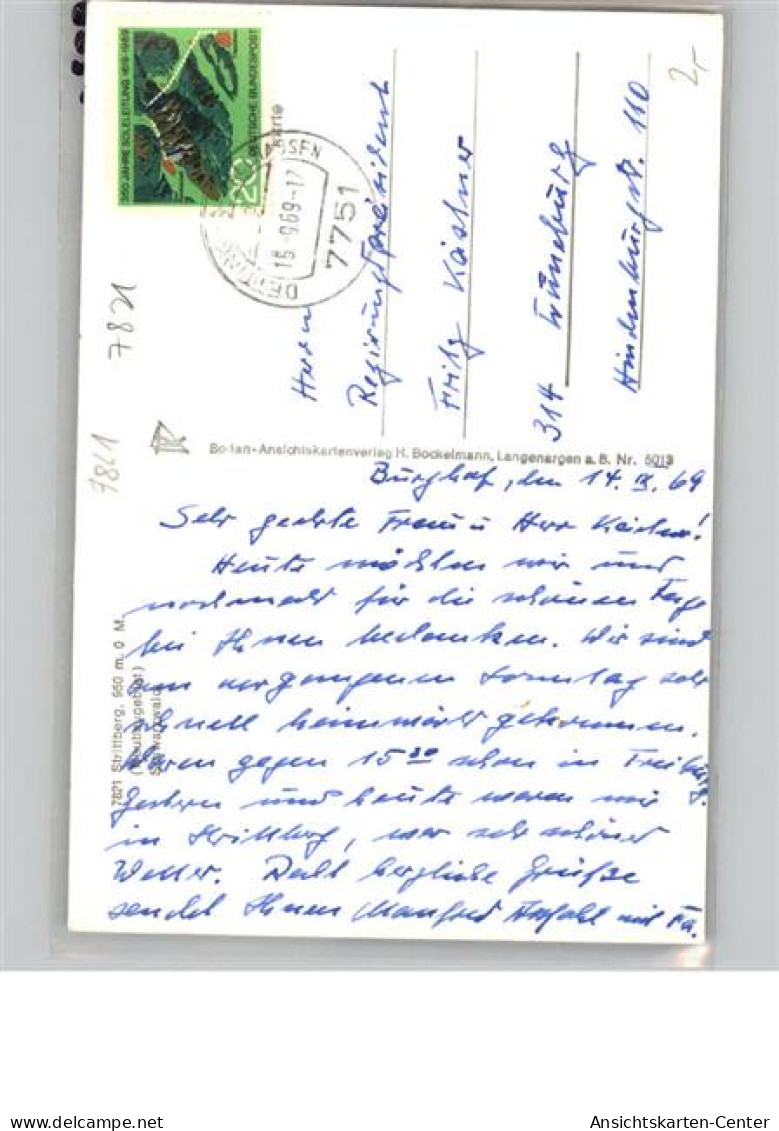 350 JAHRE SOLELEITUNG 1619-1969
DEUTSCHE BUNDESPOST
20
15.-9.69-17
7751
karte
2,-
Herrn
Regierungspräsident
Fritz Kästner
314 Lüneburg
Hindenburgstr. 110
7821
7821
Bo-tan-Ansichtskartenverlag H. Bockelmann, Langenargen a. B. Nr. 5013
7821 Strittberg, 950 m. ü M.
Schwarzwald
Burghof, den 14. IX. 69
Sehr geehrte Frau u Herr Kästner!
Heute möchten wir uns
nochmals für die schönen Tage
bei Ihnen bedanken. Wir sind
am vergangenen Sonntag sehr
schnell heimwärts gekommen.
Waren gegen 15 30 schon in Freiburg.
Gestern und heute waren wir
in Strittberg, war sehr schönes
Wetter. Recht herzliche Grüße
sendet Ihnen Manfred mit Fa.
Ansichtskarten-Center